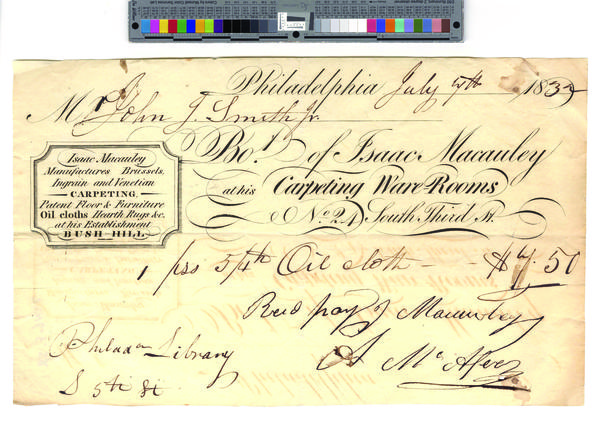 Philadelphia July 7th 183
Mr John J. Smith Jr.
Bot. of Isaac Macauley
at his Carpeting Ware-Rooms
No. 24 South Third St.
Isaac Macauley
Manufactures Brussels,
Ingrain and Venetian
CARPETING,
Patent Floor & Furniture
Oil cloths Hearth Rugs &c.
at his Establishment
BUSH-HILL
1 pss 5/4th Oil cloth - - $7.50
Recd pay I Macauley
Philada Library
S 5th St